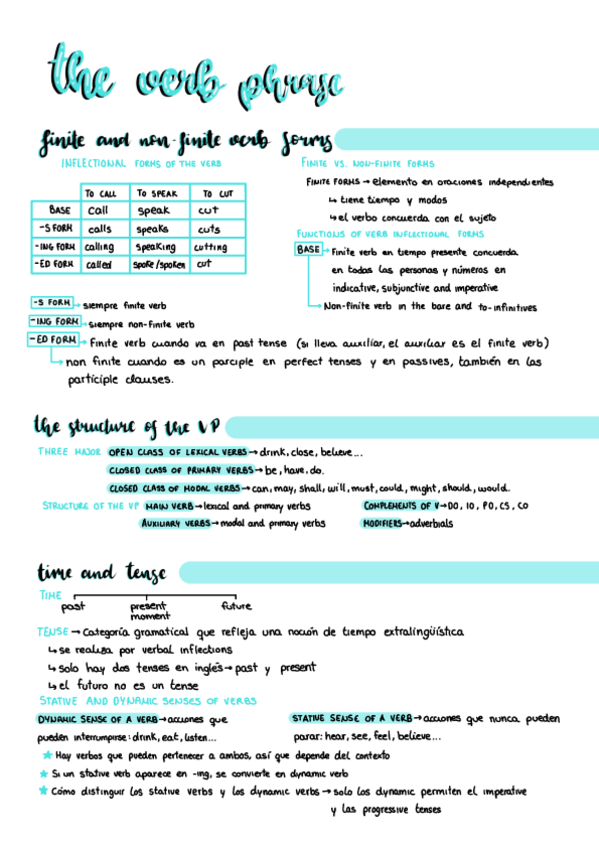 the verb phrase
finite and non-finite verb forms
INFLECTIONAL FORMS OF THE VERB
TO CALL TO SPEAK TO CUT
BASE call speak cut
-S FORM calls speaks cuts
-ING FORM calling speaking cutting
-ED FORM called spoke/spoken cut
FINITE VS. NON-FINITE FORMS
FINITE FORMS → elemento en oraciones independientes
↳ tiene tiempo y modos
↳ el verbo concuerda con el sujeto
FUNCTIONS OF VERB INFLECTIONAL FORMS
BASE → Finite verb en tiempo presente concuerda
en todas las personas y números en
indicative, subjunctive and imperative
→ Non-finite verb in the bare and to-infinitives
-S FORM → siempre finite verb
-ING FORM → siempre non-finite verb
-ED FORM → Finite verb cuando va en past tense (si lleva auxiliar, el auxiliar es el finite verb)
→ non finite cuando es un parciple en perfect tenses y en passives, también en las
participle clauses.
the structure of the VP
THREE MAJOR OPEN CLASS OF LEXICAL VERBS → drink, close, believe...
CLOSED CLASS OF PRIMARY VERBS → be, have, do.
CLOSED CLASS OF MODAL VERBS → can, may, shall, will, must, could, might, should, would.
STRUCTURE OF THE VP MAIN VERB → lexical and primary verbs COMPLEMENTS OF V → DO, IO, PO, CS, CO
AUXILIARY VERBS → modal and primary verbs MODIFIERS → adverbials
time and tense
TIME
past present future
moment
TENSE → Categoría gramatical que refleja una noción de tiempo extralingüística
↳ se realiza por verbal inflections
↳ solo hay dos tenses en inglés → past y present
↳ el futuro no es un tense
STATIVE AND DYNAMIC SENSES OF VERBS
DYNAMIC SENSE OF A VERB → acciones que
pueden interrumpirse: drink, eat, listen...
STATIVE SENSE OF A VERB → acciones que nunca pueden
parar: hear, see, feel, believe...
★ Hay verbos que pueden pertenecer a ambos, así que depende del contexto
★ Si un stative verb aparece en -ing, se convierte en dynamic verb
★ Cómo distinguir los stative verbs y los dynamic verbs → solo los dynamic permiten el imperative
y las progressive tenses